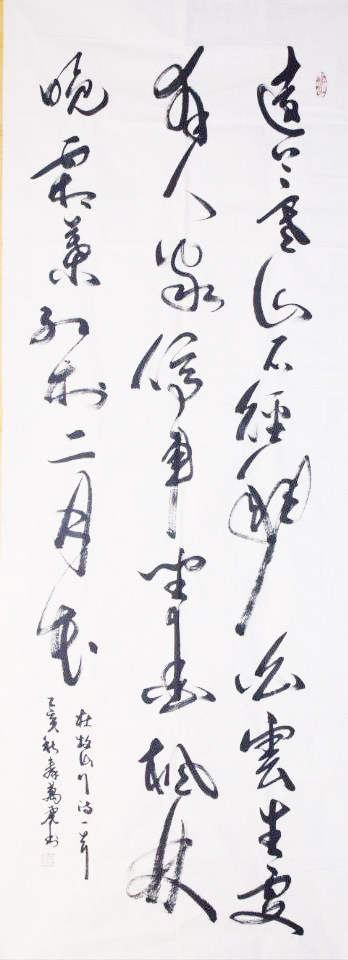 遠上寒山石徑斜白雲生處
有人家停車坐愛楓林
晚霜葉紅於二月花
杜牧山行诗一首
亥秋